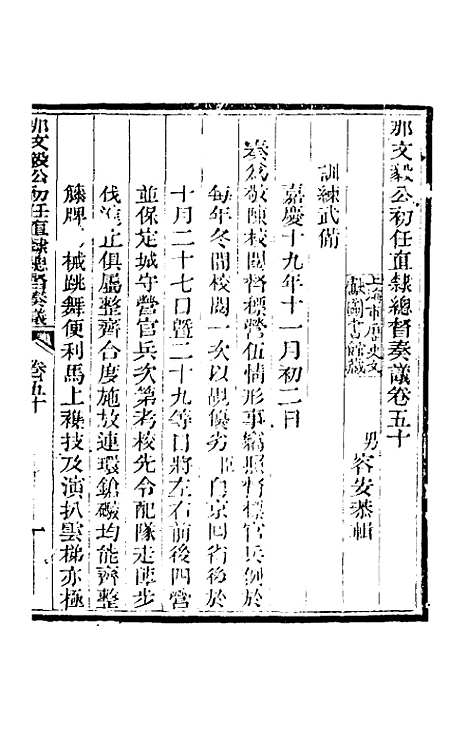 那文毅公初任直隸總督奏議卷五十
上海市歷史文
獻圖書館藏
男容安恭輯
訓練武備
嘉慶十九年十一月初二日
奏為敬陳校閱督標營伍情形事竊照督標官兵例於
每年冬間校閱一次以覘優劣臣自京回省後於
十月二十七日暨二十九等日將左右前後四營
並保定城守營官兵次第考校先令配隊走陣步
伐 止俱屬整齊合度施放連環鎗礮均能齊整
籐牌 械跳舞便利馬上雜技及演扒雲梯亦極
那文毅公初任直隸總督奏議 卷五十 一